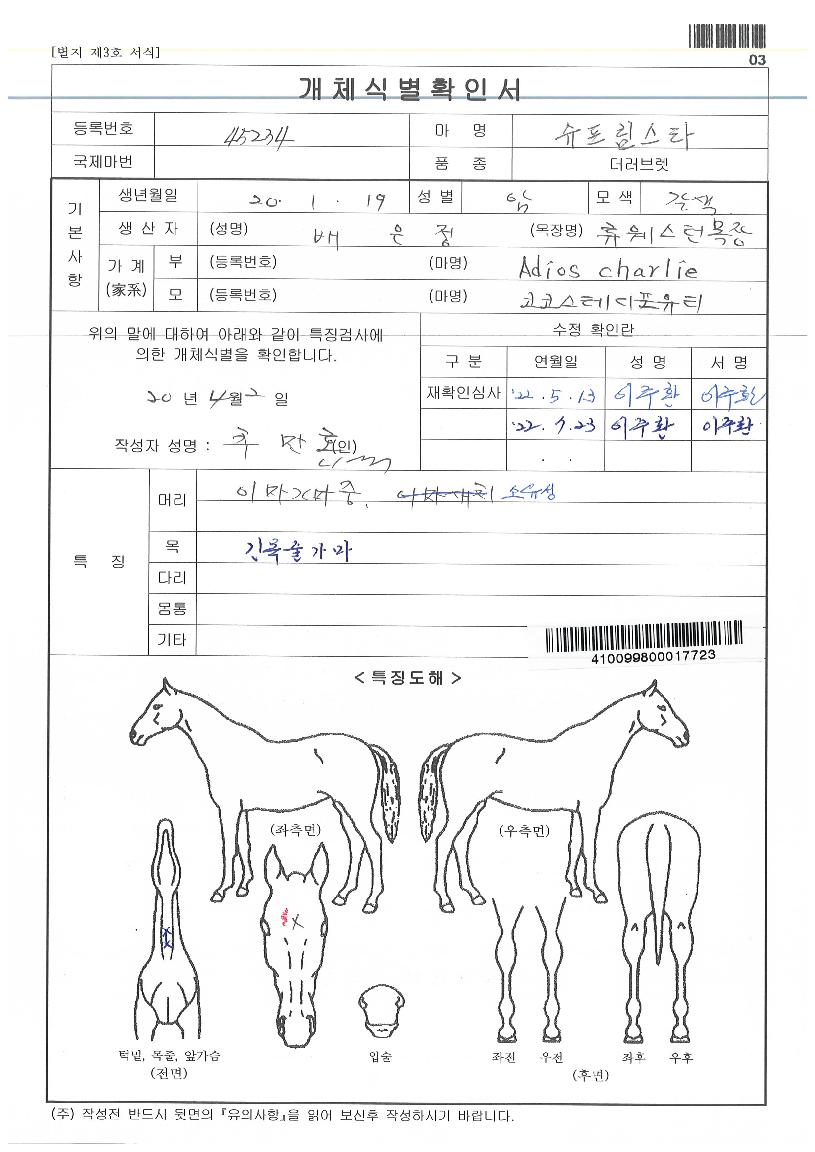 [별지 제3호 서식]
03
개체식별확인서
등록번호 45234 마 명 슈프림스타
국제마번 품 종 더러브렛
기본사항
생년월일 20. 1. 19 성별 암 모색 갈색
생 산 자 (성명) 배 은 정 (목장명) 류웨스턴목장
가계 (家系) 부 (등록번호) (마명) Adios charlie
모 (등록번호) (마명) 코코스테이디포유티
위의 말에 대하여 아래와 같이 특징검사에
의한 개체식별을 확인합니다.
20 년 4월 2 일
작성자 성명 : (인)
수정 확인란
구 분 연월일 성 명 서 명
재확인심사 '22. 5. 13 이주환 이주환
'22. 7. 23 이주환 이주환
. .
특 징
머리 이마가마중, 소유성
목 긴목줄가마
다리
몽통
기타
410099800017723
< 특징도해 >
(좌측면) (우측면)
턱밑, 목줄, 앞가슴 입술 좌진 우전 좌후 우후
(전면) (후면)
(주) 작성전 반드시 뒷면의 『유의사항』을 읽어 보신후 작성하시기 바랍니다.